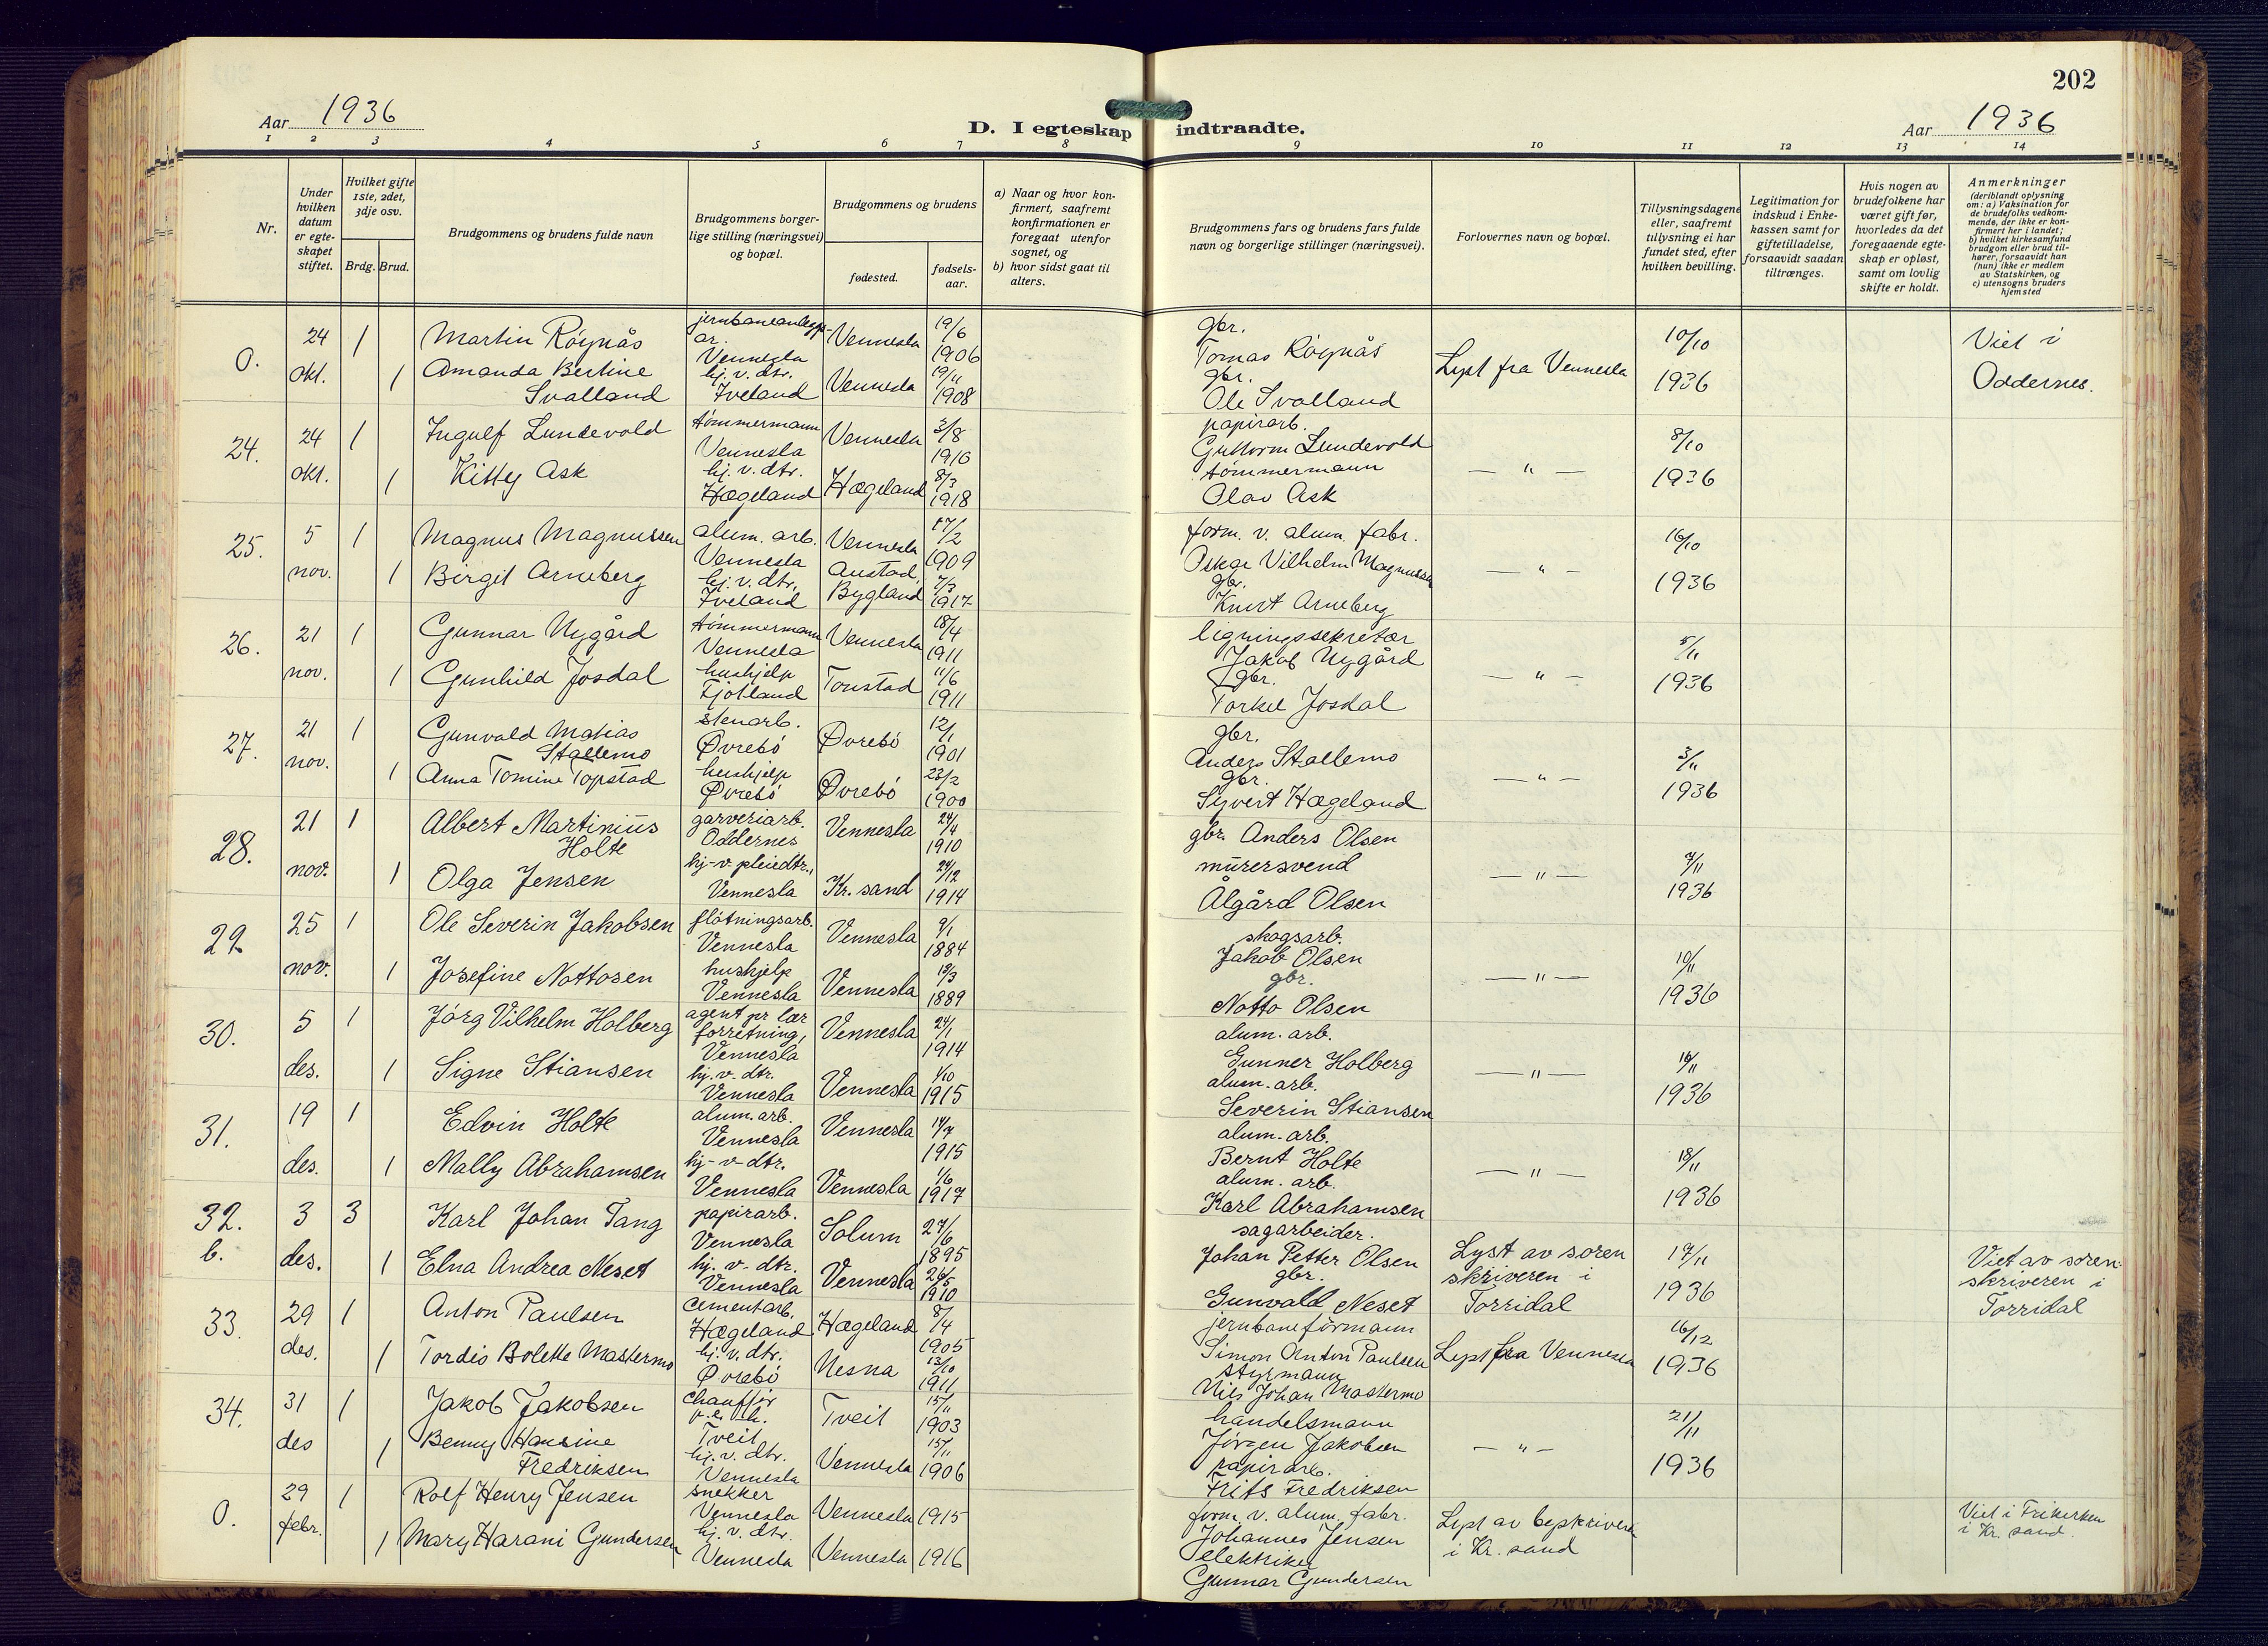 202
Aar 1936
D. I egteskap indtraadte.
Aar 1936
1 2 3 4 5 6 7 8 9 10 11 12 13 14
Nr.
Under hvilken datum er egteskapet stiftet.
Hvilket gifte 1ste, 2det, 3dje osv.
Brdg. Brud.
Brudgommens og brudens fulde navn
Brudgommens borgerlige stilling (næringsvei) og bopæl.
Brudgommens og brudens
fødested.
fødselsaar.
a) Naar og hvor konfirmert, saafremt konfirmationen er foregaat utenfor sognet, og
b) hvor sidst gaat til alters.
Brudgommens fars og brudens fars fulde navn og borgerlige stillinger (næringsvei).
Forlovernes navn og bopæl.
Tillysningsdagene eller, saafremt tillysning ei har fundet sted, efter hvilken bevilling.
Legitimation for indskud i Enkekassen samt for giftetilladelse, forsaavidt saadan tiltrænges.
Hvis nogen av brudefolkene har været gift før, hvorledes da det foregaaende egteskap er opløst, samt om lovlig skifte er holdt.
Anmerkninger
(deriblandt oplysning om: a) Vaksination for de brudefolks vedkommende, der ikke er konfirmert her i landet; b) hvilket kirkesamfund brudgom eller brud tilhører, forsaavidt han (hun) ikke er medlem av Statskirken, og c) utensogns bruders hjemsted
0. 24 okt. 1 Martin Røynås jernbaneanleggsar. Vennesla Vennesla 19/6 1906 gbr. Tomas Røynås Lyst fra Vennesla 10/10 1936 Viet i Oddernes.
1 Amanda Bertine Svalland hj. v. dtr. Iveland Vennesla 19/11 1908 gbr. Ole Svalland
24. 24 okt. 1 Ingulf Lundevold tømmermann Vennesla Vennesla 3/8 1910 papirarb. Guttorm Lundevold — " — 8/10 1936
1 Kitty Ask hj. v. dtr. Hægeland Hægeland 8/3 1918 tømmermann Olav Ask
25. 5 nov. 1 Magnus Magnussen alum. arb. Vennesla Vennesla 17/2 1909 form. v. alum. fabr. Oskar Vilhelm Magnussen — " — 16/10 1936
1 Birgit Arneberg hj. v. dtr. Iveland Austad, Bygland 7/3 1917 gbr. Knut Arneberg
26. 21 nov. 1 Gunnar Nygård tømmermann Vennesla Vennesla 18/4 1911 ligningssekretær Jakob Nygård — " — 5/11 1936
1 Gunhild Josdal hushjelp Fjotland Tonstad 11/6 1911 gbr. Torkel Josdal
27. 21 nov. 1 Gunvald Matias Stallemo stenarb. Øvrebø Øvrebø 12/1 1901 gbr. Anders Stallemo — " — 3/11 1936
1 Anna Tomine Topstad hushjelp Øvrebø Øvrebø 23/2 1900 gbr. Syvert Hægeland
28. 21 nov. 1 Albert Martinius Holte garveriarb. Oddernes Vennesla 24/4 1910 gbr. Anders Olsen — " — 7/11 1936
1 Olga Jensen hj-v-pleiedtr., Vennesla Kr. sand 24/12 1914 murersvend Ålgård Olsen
29. 25 nov. 1 Ole Severin Jakobsen fløtningsarb. Vennesla Vennesla 9/1 1884 skogsarb. Jakob Olsen — " — 10/11 1936
1 Josefine Nottosen hushjelp Vennesla Vennesla 19/3 1889 gbr. Notto Olsen
30. 5 des. 1 Jørg Vilhelm Holberg agent pr lær forretning, Vennesla Vennesla 24/1 1914 alum. arb. Gunner Holberg — " — 16/11 1936
1 Signe Stiansen hj. v. dtr. Vennesla Vennesla 1/10 1915 alum. arb. Severin Stiansen
31. 19 des. 1 Edvin Holte alum. arb. Vennesla Vennesla 14/7 1915 alum. arb. Bernt Holte — " — 18/11 1936
1 Mally Abrahamsen hj- v- dtr. Vennesla Vennesla 1/6 1917 alum. arb. Karl Abrahamsen
32. b. 3 des. 3 Karl Johan Tang papirarb. Vennesla Solum 27/6 1895 sagarbeider. Johan Petter Olsen Lyst av soren skriveren i Torridal 17/11 1936 Viet av sorenskriveren i Torridal
1 Elna Andrea Neset hj. v- dtr. Vennesla Vennesla 26/5 1910 gbr. Gunvald Neset
33. 29 des. 1 Anton Paulsen cementarb. Hægeland Hægeland 8/4 1905 jernbaneformann Simon Anton Paulsen Lyst fra Vennesla 16/12 1936
1 Tordis Bolette Mastermo hj. v. dtr. Øvrebø Nesna 13/10 1911 styrmann Nils Johan Mastermo
34. 31 des 1 Jakob Jakobsen chauffør Tveit Tveit 15/11 1903 handelsmann Jørgen Jakobsen — " — 21/11 1936
1 Benny Hansine Fredriksen hj. v. dtr. Vennesla Vennesla 15/11 1906 papirarb. Frits Fredriksen
0. 29 febr. 1 Rolf Henry Jensen snekker Vennesla Vennesla 1915 form. v. alum. fabr. Johannes Jensen Lyst av byskriveren i Kr. sand Viet i Frikirken i Kr. sand.
1 Mary Harani Gundersen hj. v. dtr. Vennesla Vennesla 1916 elektriker Gunnar Gundersen